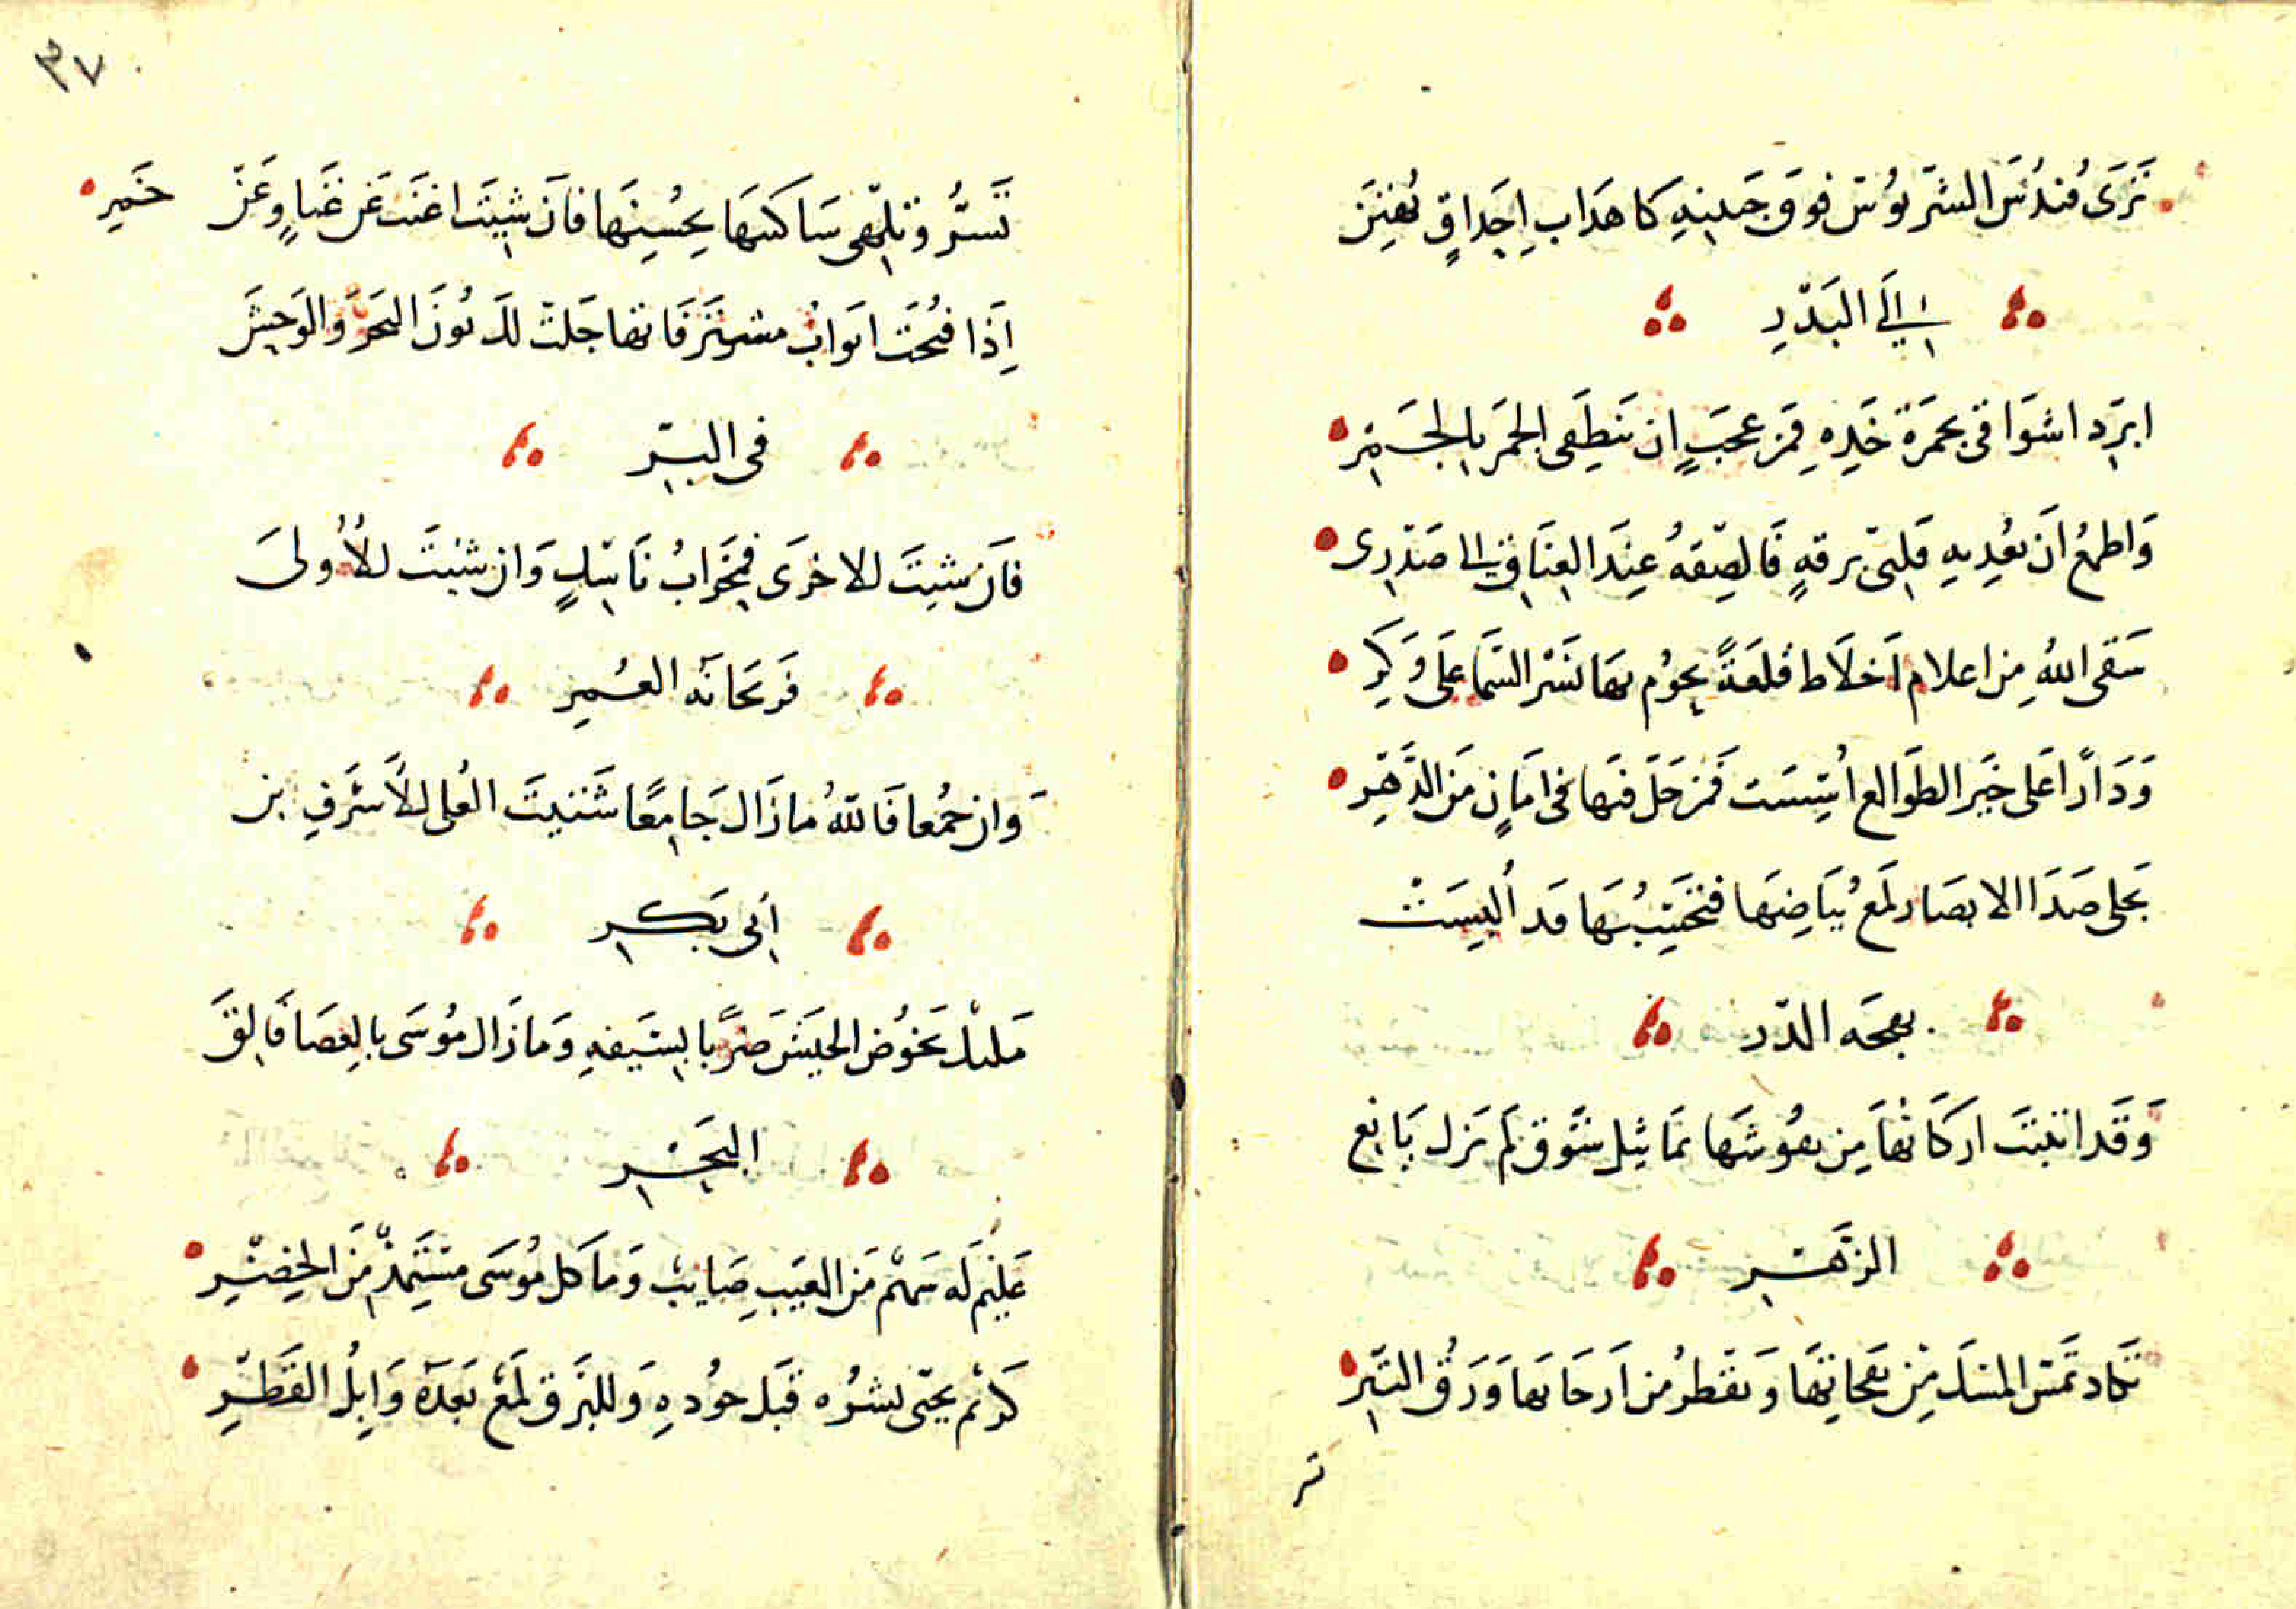 ترى قندس الشربوش فوق جبينه كاهداب احداق
الى البدر
ابرد اشواقى بجمرة خده فمن عجب ان ينطفى الجمر بالجمر
واطمع ان يعديه قلبى برقه فالصقه عند العناق الى صدرى
سقى الله من اعلام اخلاط قلعة يحوم بها نسر السما على وكر
ودارًا على خير الطوالع اسست فمن حل فيها فى امان من الدهر
يجلى صدا الابصار لمع بياضها فتحسبها قد البست
بهجه الدر
وقد انبتت اركانها من نقوشها تماثيل شوق لم تزل يانع
الزهر
تكاد تمس المسك من نفحاتها وتقطر من ارجائها ورق التبر
تسر
٣٧
تسر وتلهى ساكنيها بحسنها فان شيت اغنت عن غناء وعن خمر
اذا فتحت ابواب مشرفاتها جلت لك نون البحر والوحش
فى البر
فان شيت للاخرى فمحراب ناسك وان شيت للأولى
فريحانه العمر
وان جمعا فالله مازال جامعًا شتيت العلى للأشرف بن
ابى بكر
مليك يخوض الجيش ضربا بسيفه ومازال موسى بالعصا فالق
البحر
عليم له سهم من الغيب صايب وما كل موسى مستمد من الخضر
كريم يحيى بشره قبل جوده وللبرق لمع بعده وابل القطر